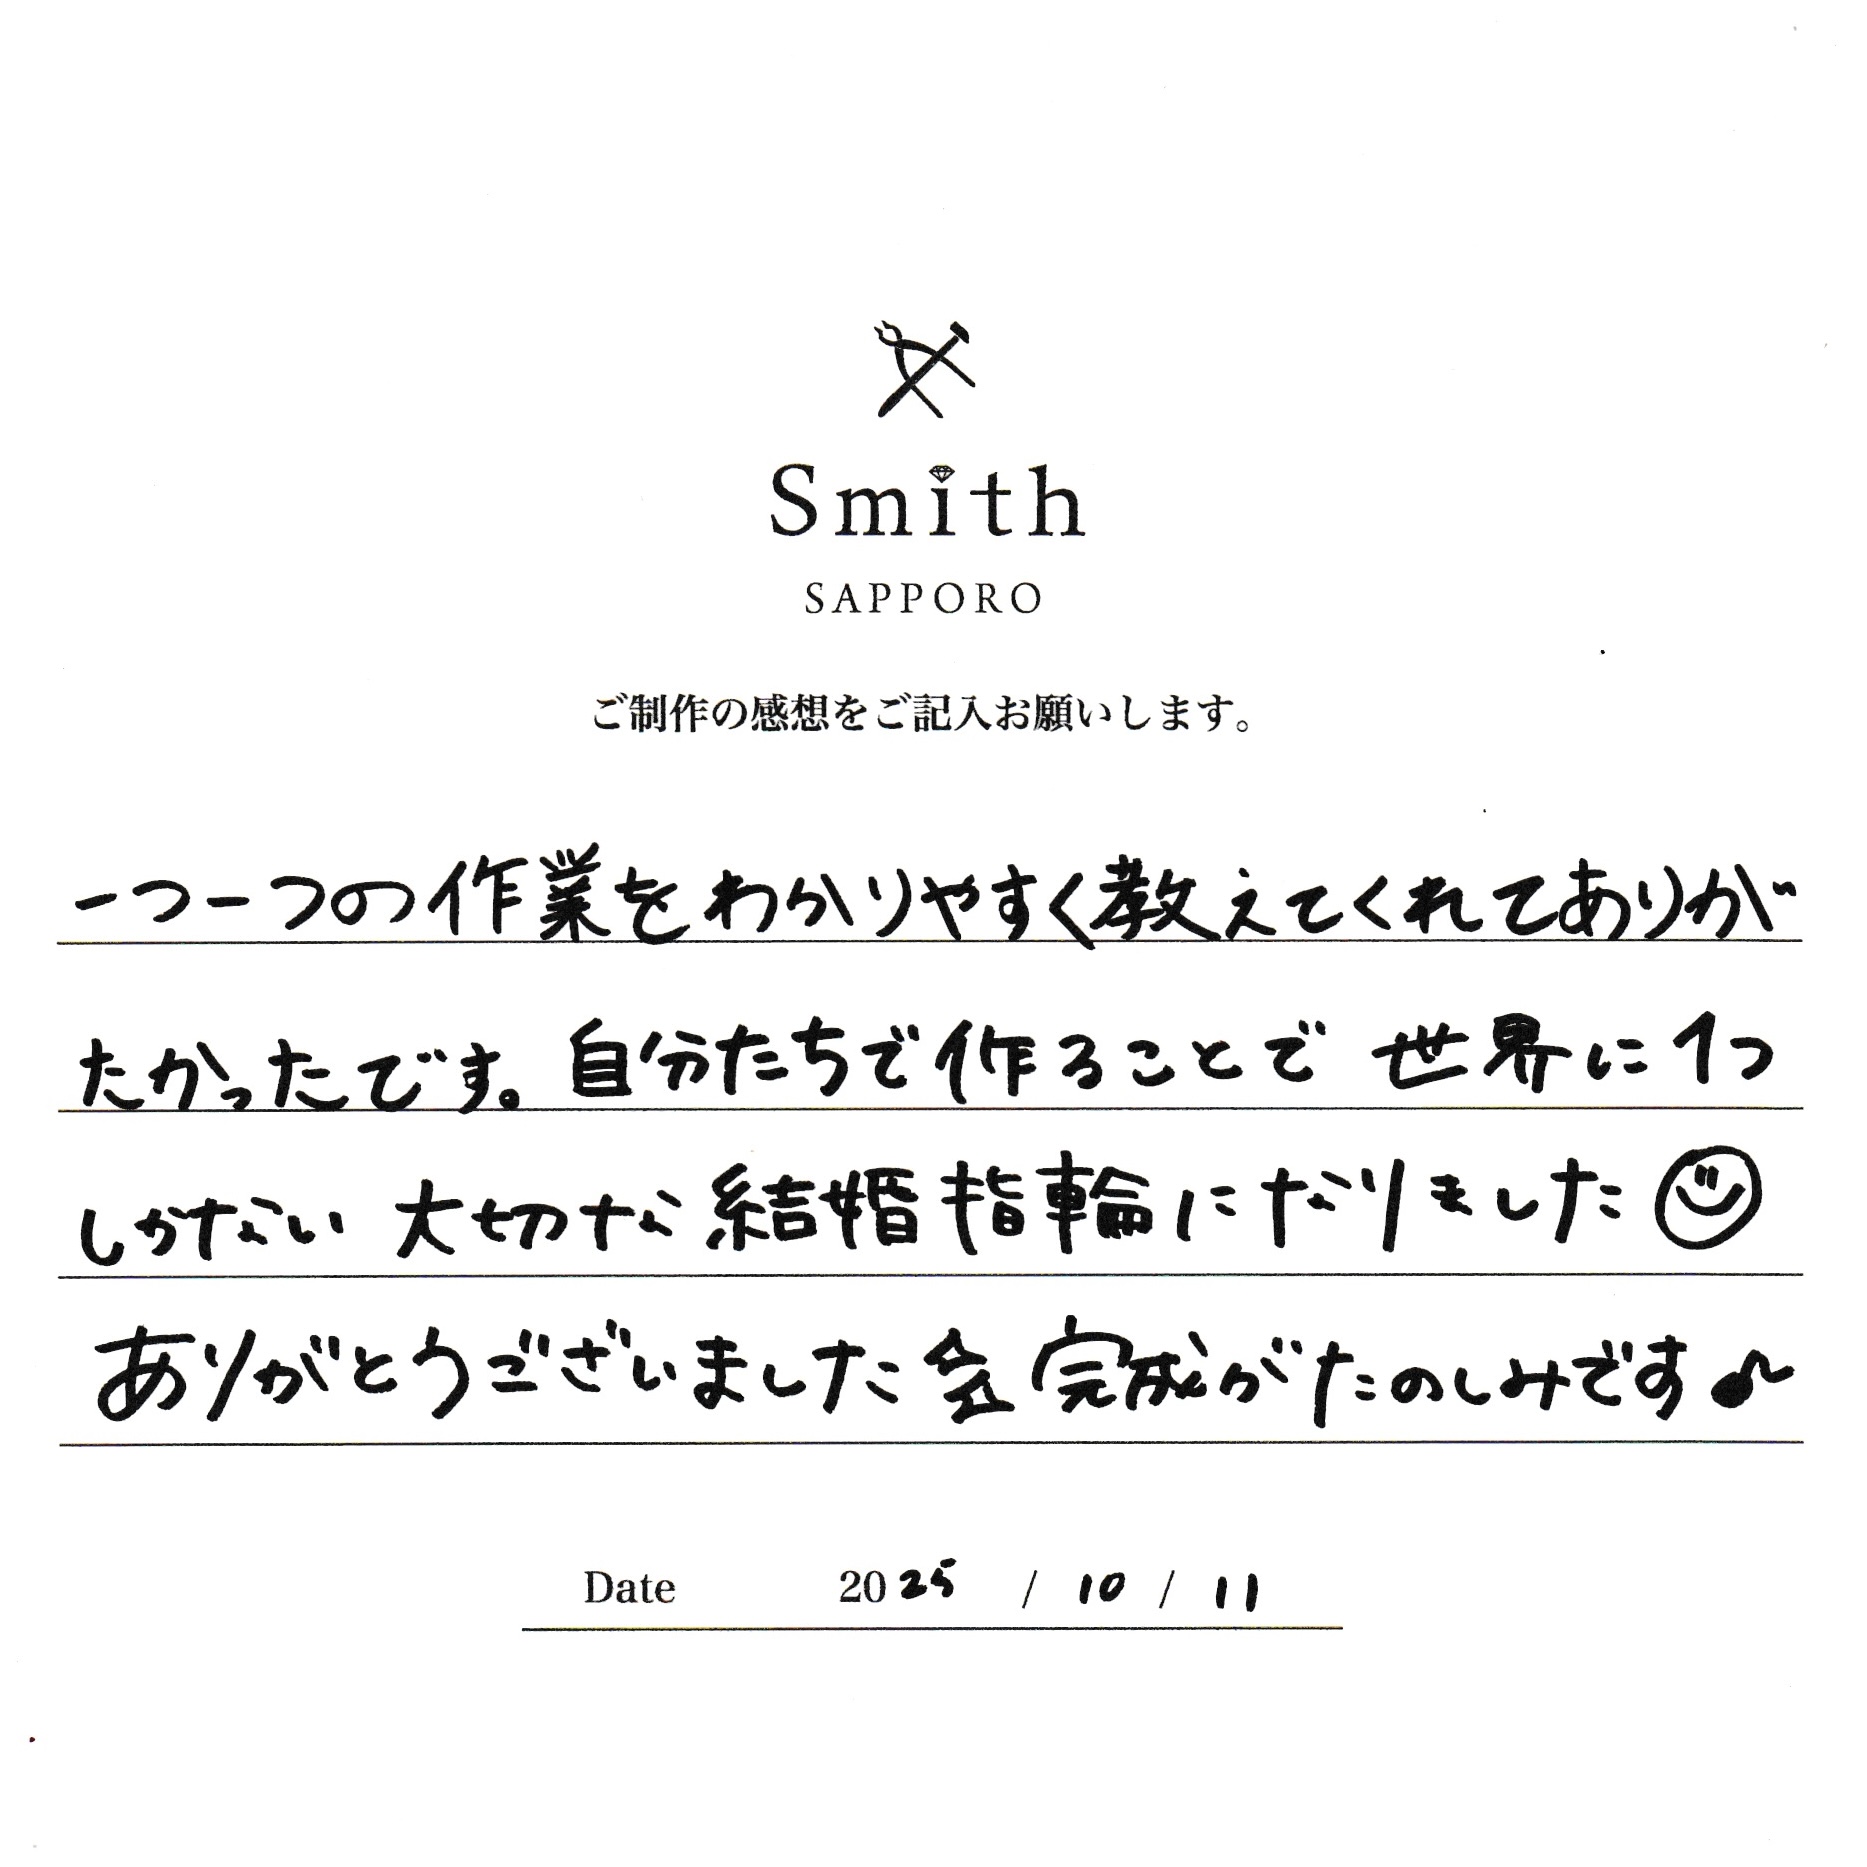 Smith
SAPPORO
ご制作の感想をご記入お願いします。
一つ一つの作業をわかりやすく教えてくれてありが
たかったです。自分たちで作ることで 世界に1つ
しかない 大切な結婚指輪になりました
ありがとうございました 完成がたのしみです♪
Date 2025 / 10 / 11